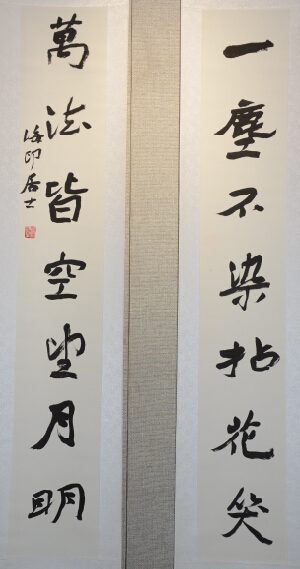 一塵不染拈花笑
萬法皆空望月明
海印居士